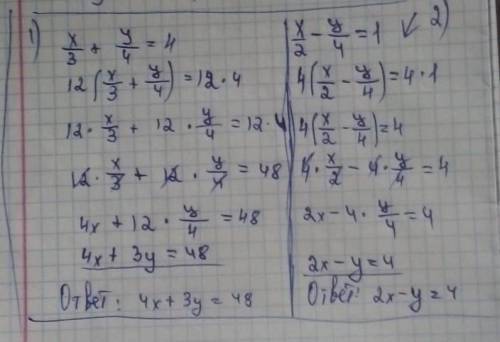 1)
x/3 + y/4 = 4
12(x/3 + y/4) = 12 · 4
12 · x/3 + 12 · y/4 = 12 · 4
12 · x/3 + 12 · y/4 = 48
4x + 12 · y/4 = 48
4x + 3y = 48
Ответ: 4x + 3y = 48
2)
x/2 - y/4 = 1 ↙
4(x/2 - y/4) = 4 · 1
4(x/2 - y/4) = 4
4 · x/2 - 4 · y/4 = 4
2x - 4 · y/4 = 4
2x - y = 4
Ответ: 2x - y = 4